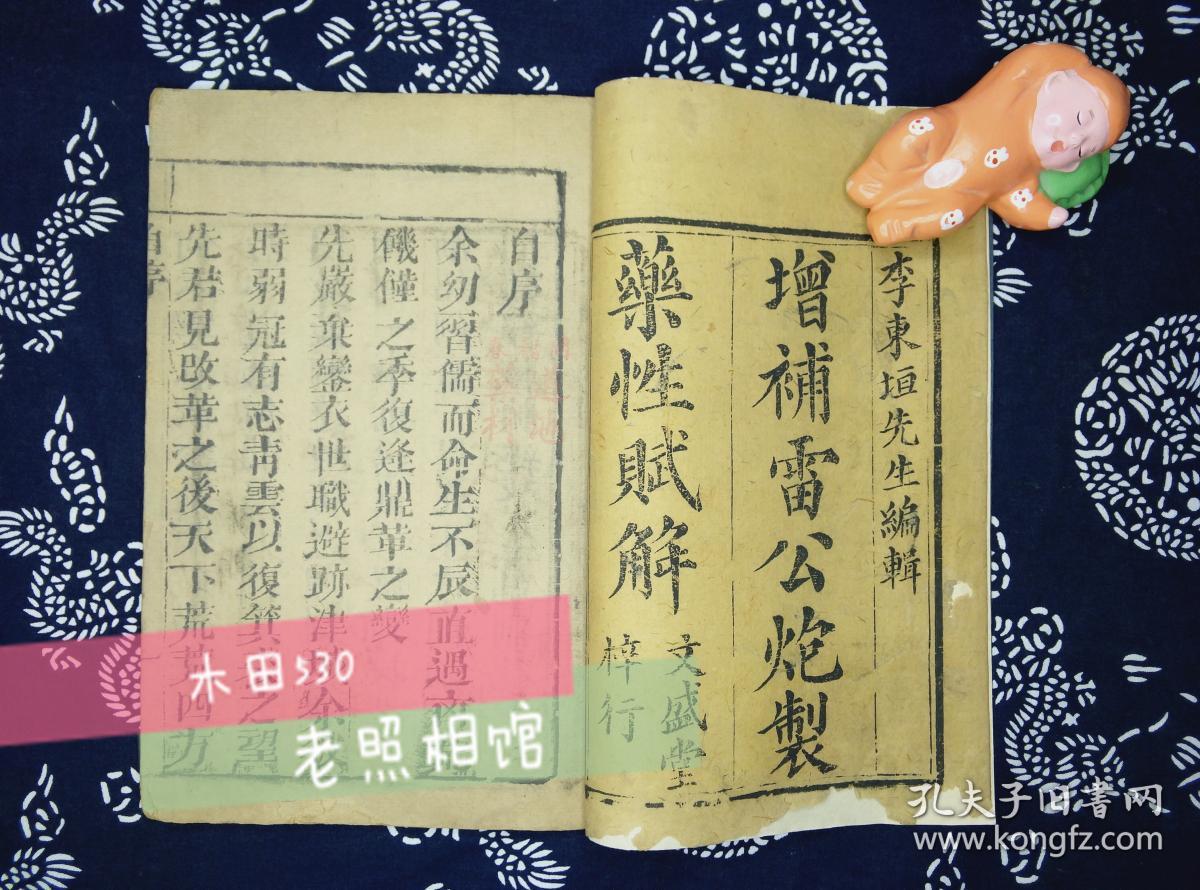 李東垣先生編輯
增補雷公炮製
藥性賦解
文盛堂
梓行
自序
余幼習儒而命生不辰直遇
饑饉之季復逢鼎革之變
先嚴棄鑾衣世職避跡津
時弱冠有志靑雲以復箕之望
先君見改革之後天下荒四方
自序
木田530
老照相馆
孔夫子旧书网
www.kongfz.com